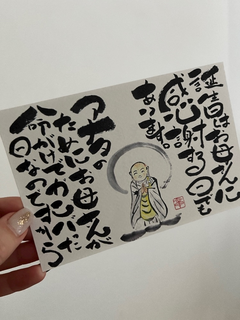 誕生日はお母さんに
感謝する日でも
あります。
アナタの
ためにお母さんが
命がけでガンバった
日なのですから